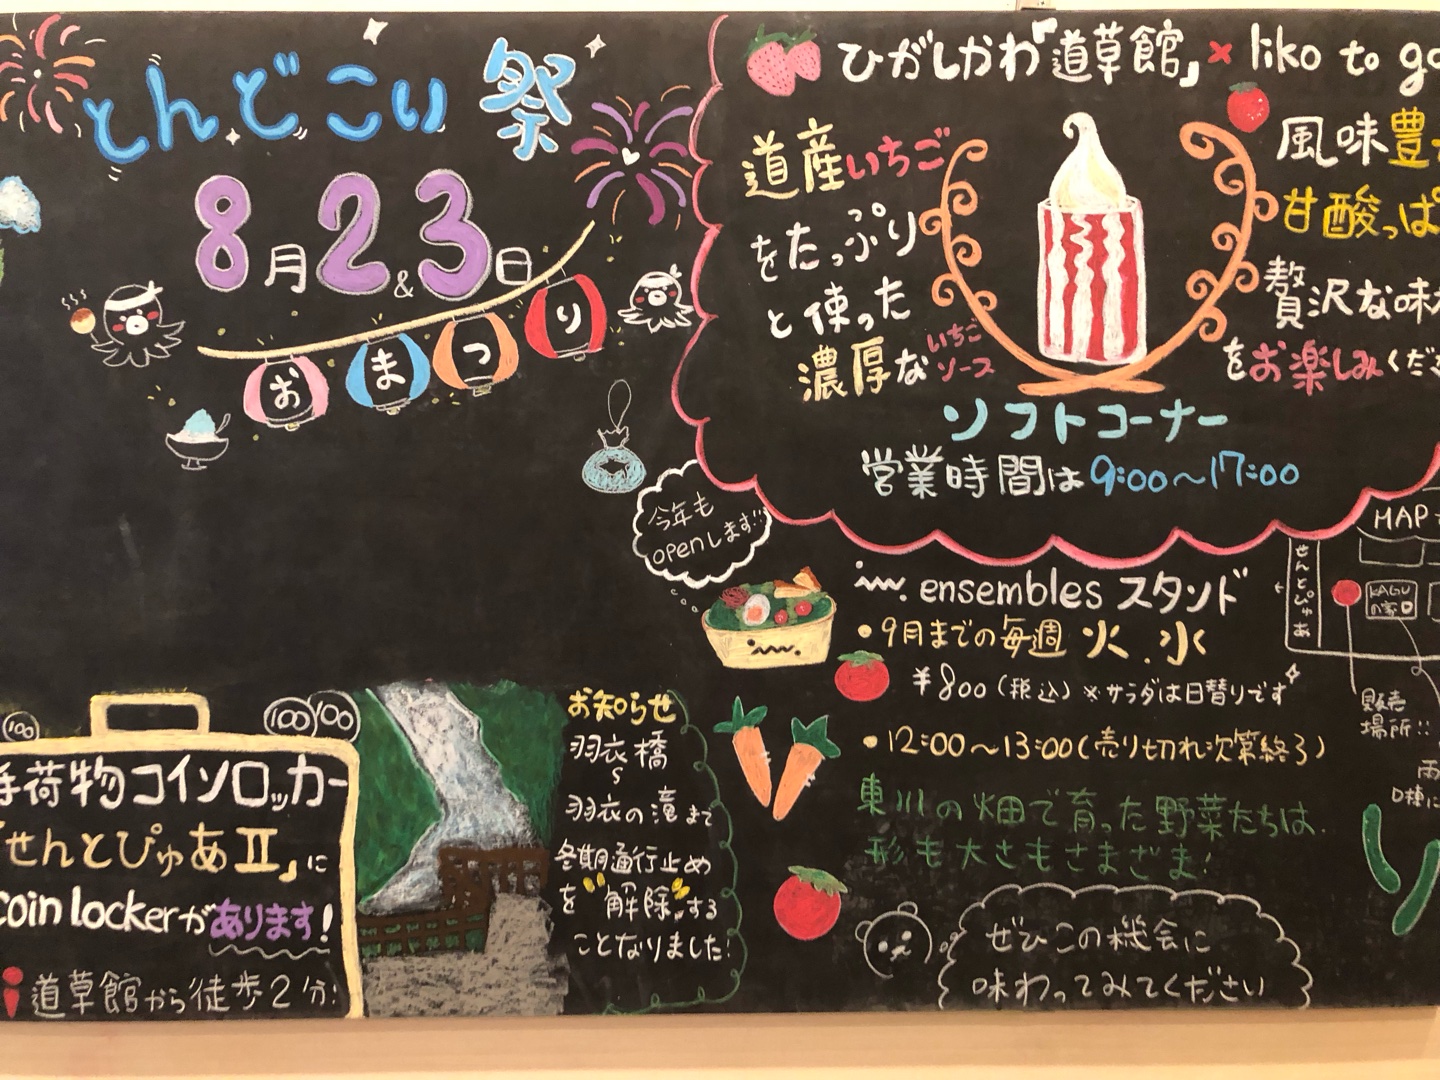 とんどこい 祭
8月2&3日
おまつり
ひがしかわ「道草館」× liko to go
道産いちご
をたっぷり
と使った
濃厚な いちごソース
風味豊
甘酸っぱ
贅沢な味
をお楽しみくださ
ソフトコーナー
営業時間は9:00〜17:00
今年も
openします!!
ensembles スタンド
・9月までの毎週 火.水
¥800(税込)※サラダは日替りです
・12:00〜13:00(売り切れ次第終了)
東川の畑で育った野菜たちは.
形も大きさもさまざま!
ぜひこの機会に
味わってみてください
MAP
せんとぴゅあ
KAGUの家
販売
場所!!
100
100 100
手荷物コインロッカー
「せんとぴゅあⅡ」に
coin lockerがあります!
道草館から徒歩2分!
お知らせ
羽衣橋
〜
羽衣の滝まで
冬期通行止め
を"解除"する
ことなりました!